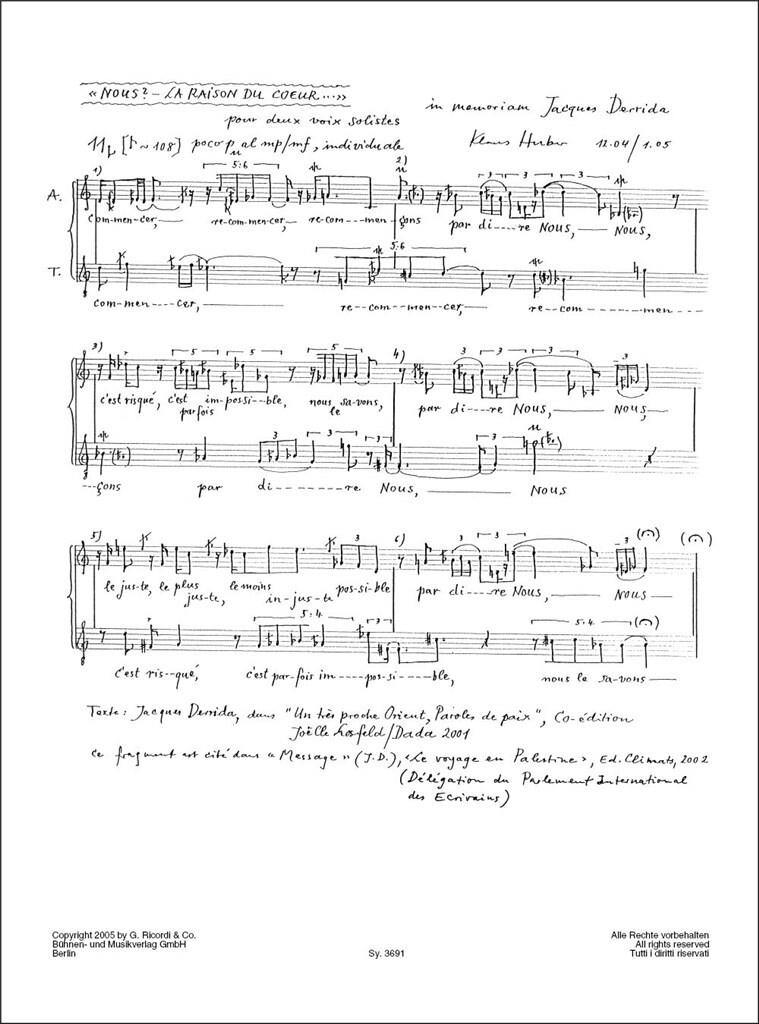 « NOUS? – LA RAISON DU COEUR...»
in memoriam Jacques Derrida
pour deux voix solistes
Klaus Huber 12.04/1.05
[~108] poco p, al mp/mf, individuale
5:6
1) 2)
A.
com-men-cer, re-com-men-cer, re-com---men-çons par di----re NOUS, NOUS,
3 3
5:6
T.
com-men---cer, re-com--men-cer, re-com----men---
3) 5 5 5 4) 3 3 3
c'est risqué, c'est im-pos-si--ble, nous sa-vons, par di---re NOUS, NOUS,
parfois le
3 3 3 3
---çons par di----re Nous, Nous
5) 3 6) 3 3 3
le jus-te, le plus le moins pos-si-ble par di----re Nous, Nous
jus-te, in-jus-te
5:4 3 5:4
c'est ris--qué, c'est par-fois im---pos-si---ble, nous le sa-vons
Texte: Jacques Derrida, dans "Un très proche Orient, Paroles de paix", Co-édition
Joëlle Losfeld/Dada 2001
Ce fragment est cité dans «Message» (J.D.), «Le voyage en Palestine», Ed. Climats, 2002
(Délégation du Parlement International
des Ecrivains)
Copyright 2005 by G. Ricordi & Co.
Bühnen- und Musikverlag GmbH
Berlin
Sy. 3691
Alle Rechte vorbehalten
All rights reserved
Tutti i diritti riservati